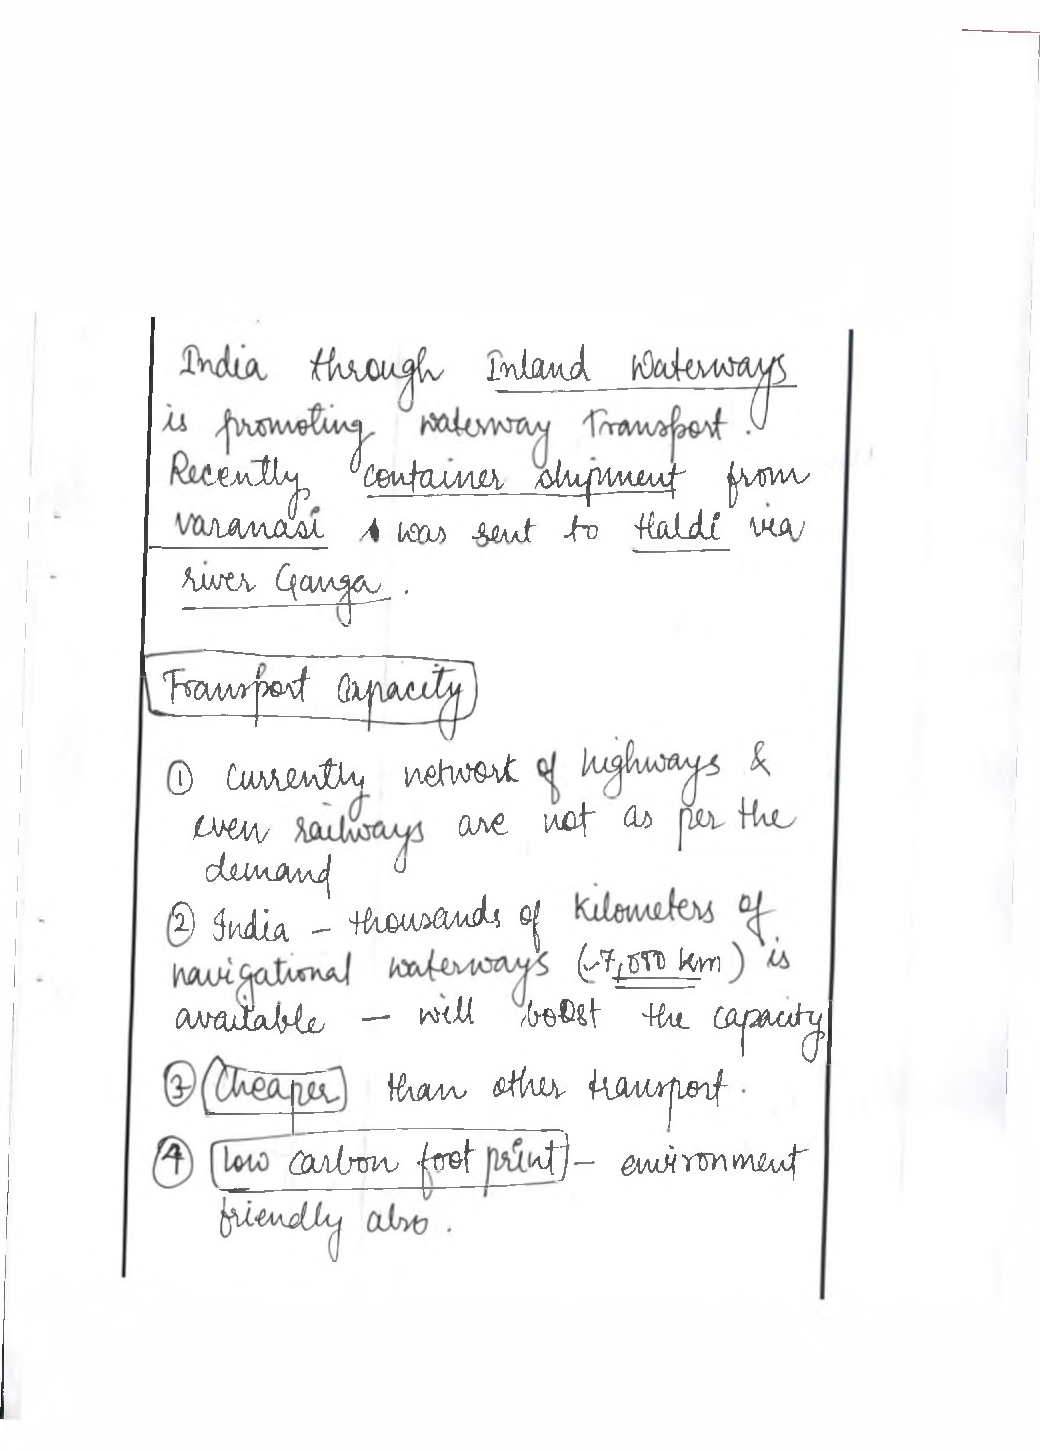 India through Inland Waterways
is promoting waterway Transport.
Recently container shipment from
varanasi was sent to Haldi via
river Ganga.
Transport Capacity
① Currently network of highways &
even railways are not as per the
demand
② India - thousands of kilometers of
navigational waterways (~7,000 km) is
available - will boost the capacity
③ Cheaper than other transport.
④ Low carbon foot print - environment
friendly also.